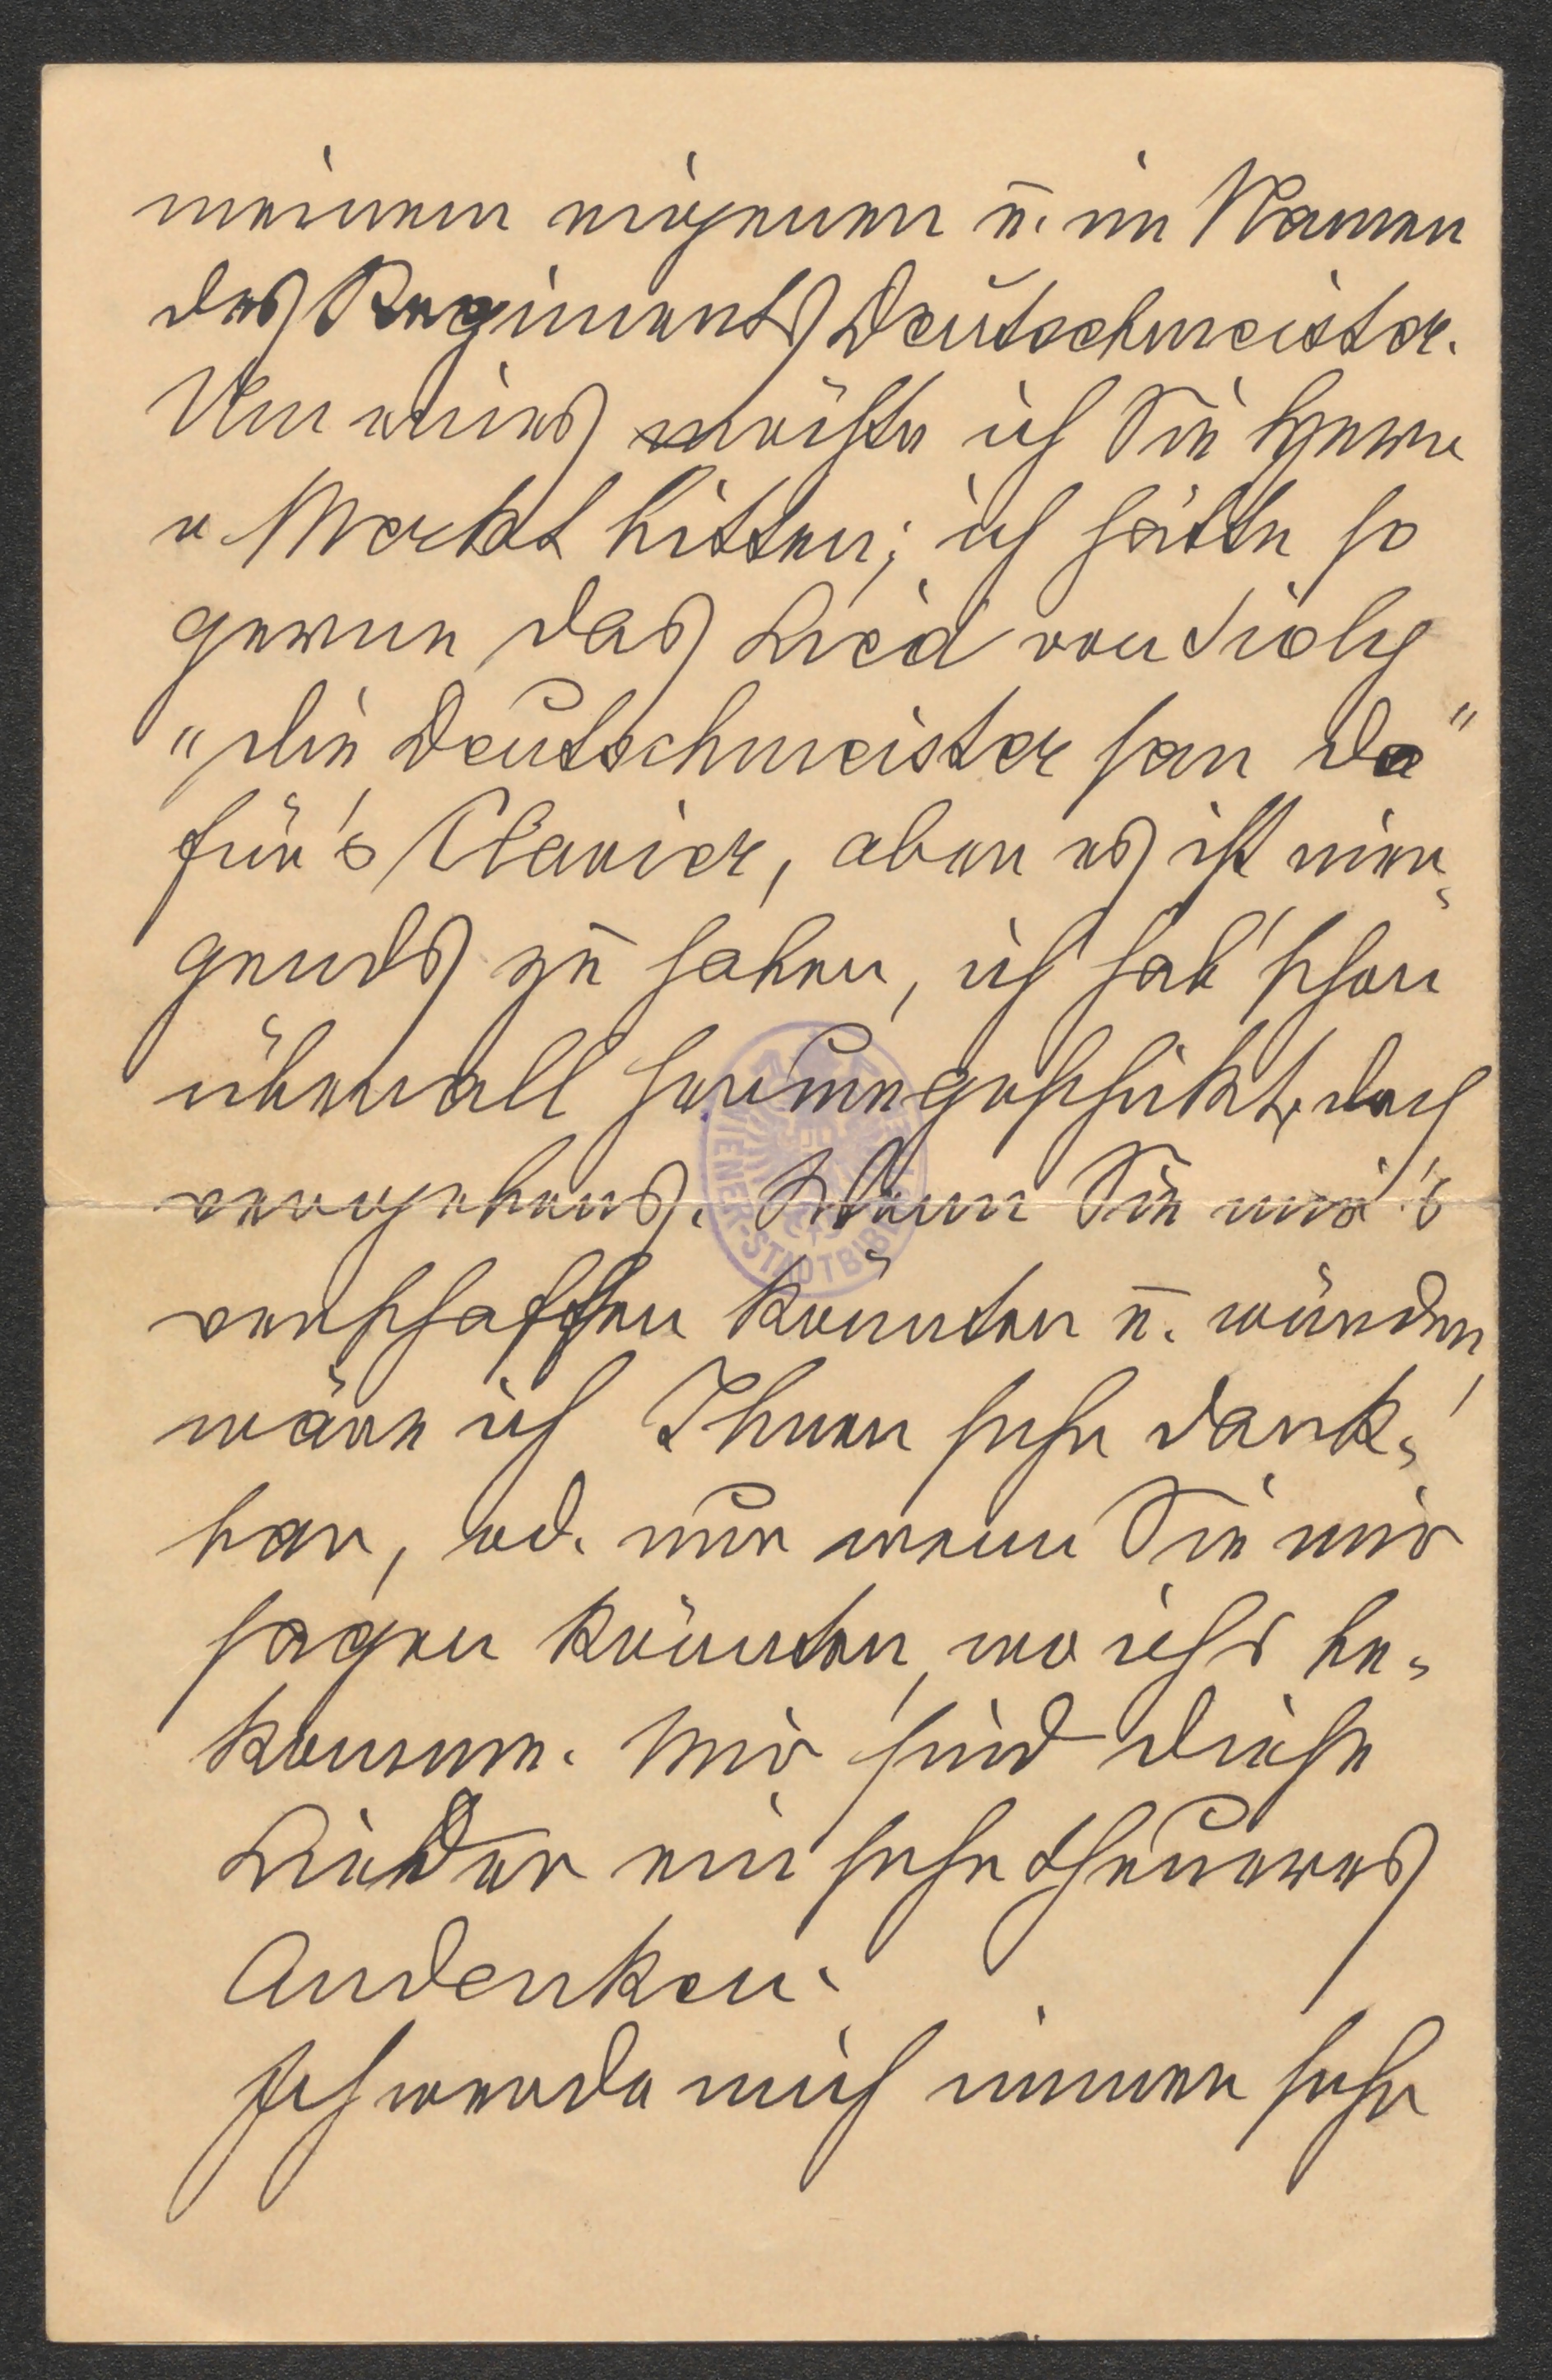 meinem eigenen u. im Namen
des Regiments Deutschmeister.
Um eines möchte ich Sie Herrn
v. Merkt bitten; ich hätte so
gerne das Lied von Sioly
"die Deutschmeister san da"
für's Clavier, aber es ist nir-
gends zu haben, ich hab' schon
überall herumgeschickt, doch
vergebens. Wenn Sie mir's
verschaffen könnten u. würden,
wäre ich Ihnen sehr dank-
bar, od. nur wenn Sie mir
sagen könnten, wo ichs be-
komme. Mir sind diese
Lieder ein sehr theueres
Andenken.
Ich werde mich immer sehr
WIENER STADTBIBL